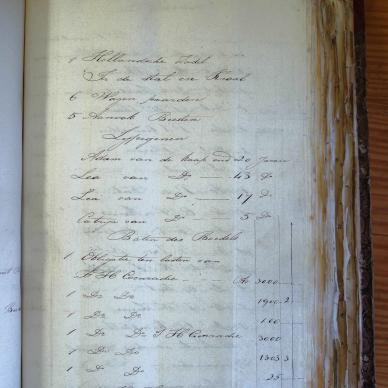 1 Hollandsche Zadel
In de Stal en Kraal
6 Wagen paarden
5 Aanteel Beesten
Lijfeigenen
Adam van de Kaap oud 20 Jaren
Lea van Do — 43 Do
Lea van Do — 17 Do
Catryn van Do — 5 Do
Baten des Boedels
1 Obligatie ten lasten van
F H Conradie - - - 3000
1 Do Do 1900 2
1 Do Do 100
1 Do Do F H Conradie 3000
1 Do Do 1303 3
1 Do Do 25